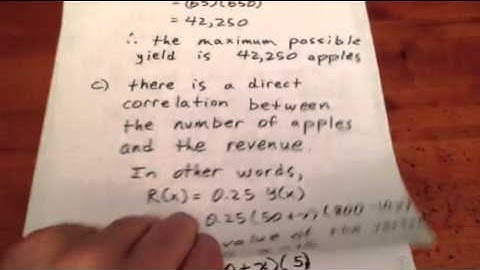 = (65)(650)
= 42,250
∴ the maximum possible
yield is 42,250 apples
c) there is a direct
correlation between
the number of apples
and the revenue.
In other words,
R(x) = 0.25 y(x)
0.25(50+x)(800-10x)
value of
+x)(5